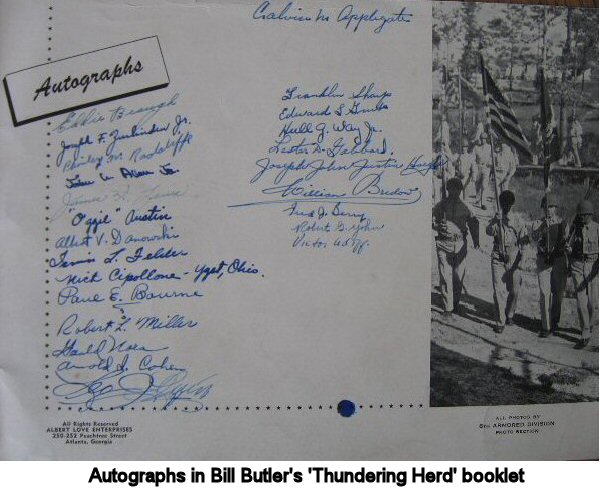 Calvin M Applegate
Autographs
Eddie Brough
Joseph F. Zurlinden Jr.
Presley M. Radcliffe
John W Allen Jr.
James
"Ozzie" Austin
Albert V. Danowski
Travis L. Felder
Nick Cipollone - Ygst, Ohio.
Paul E. Bourne
Robert L. Miller
Harold
Arnold J. Cohen
Franklin Sharp
Edward S.
Hull G. Way Jr.
Lester D. Gebbard.
Joseph John Justin Hough
William Bredow
Fred J. Berry
Robert G. Yohn
Victor
All Rights Reserved
ALBERT LOVE ENTERPRISES
250-252 Peachtree Street
Atlanta, Georgia
ALL PHOTOS BY
8TH ARMORED DIVISION
PHOTO SECTION
Autographs in Bill Butler's 'Thundering Herd' booklet